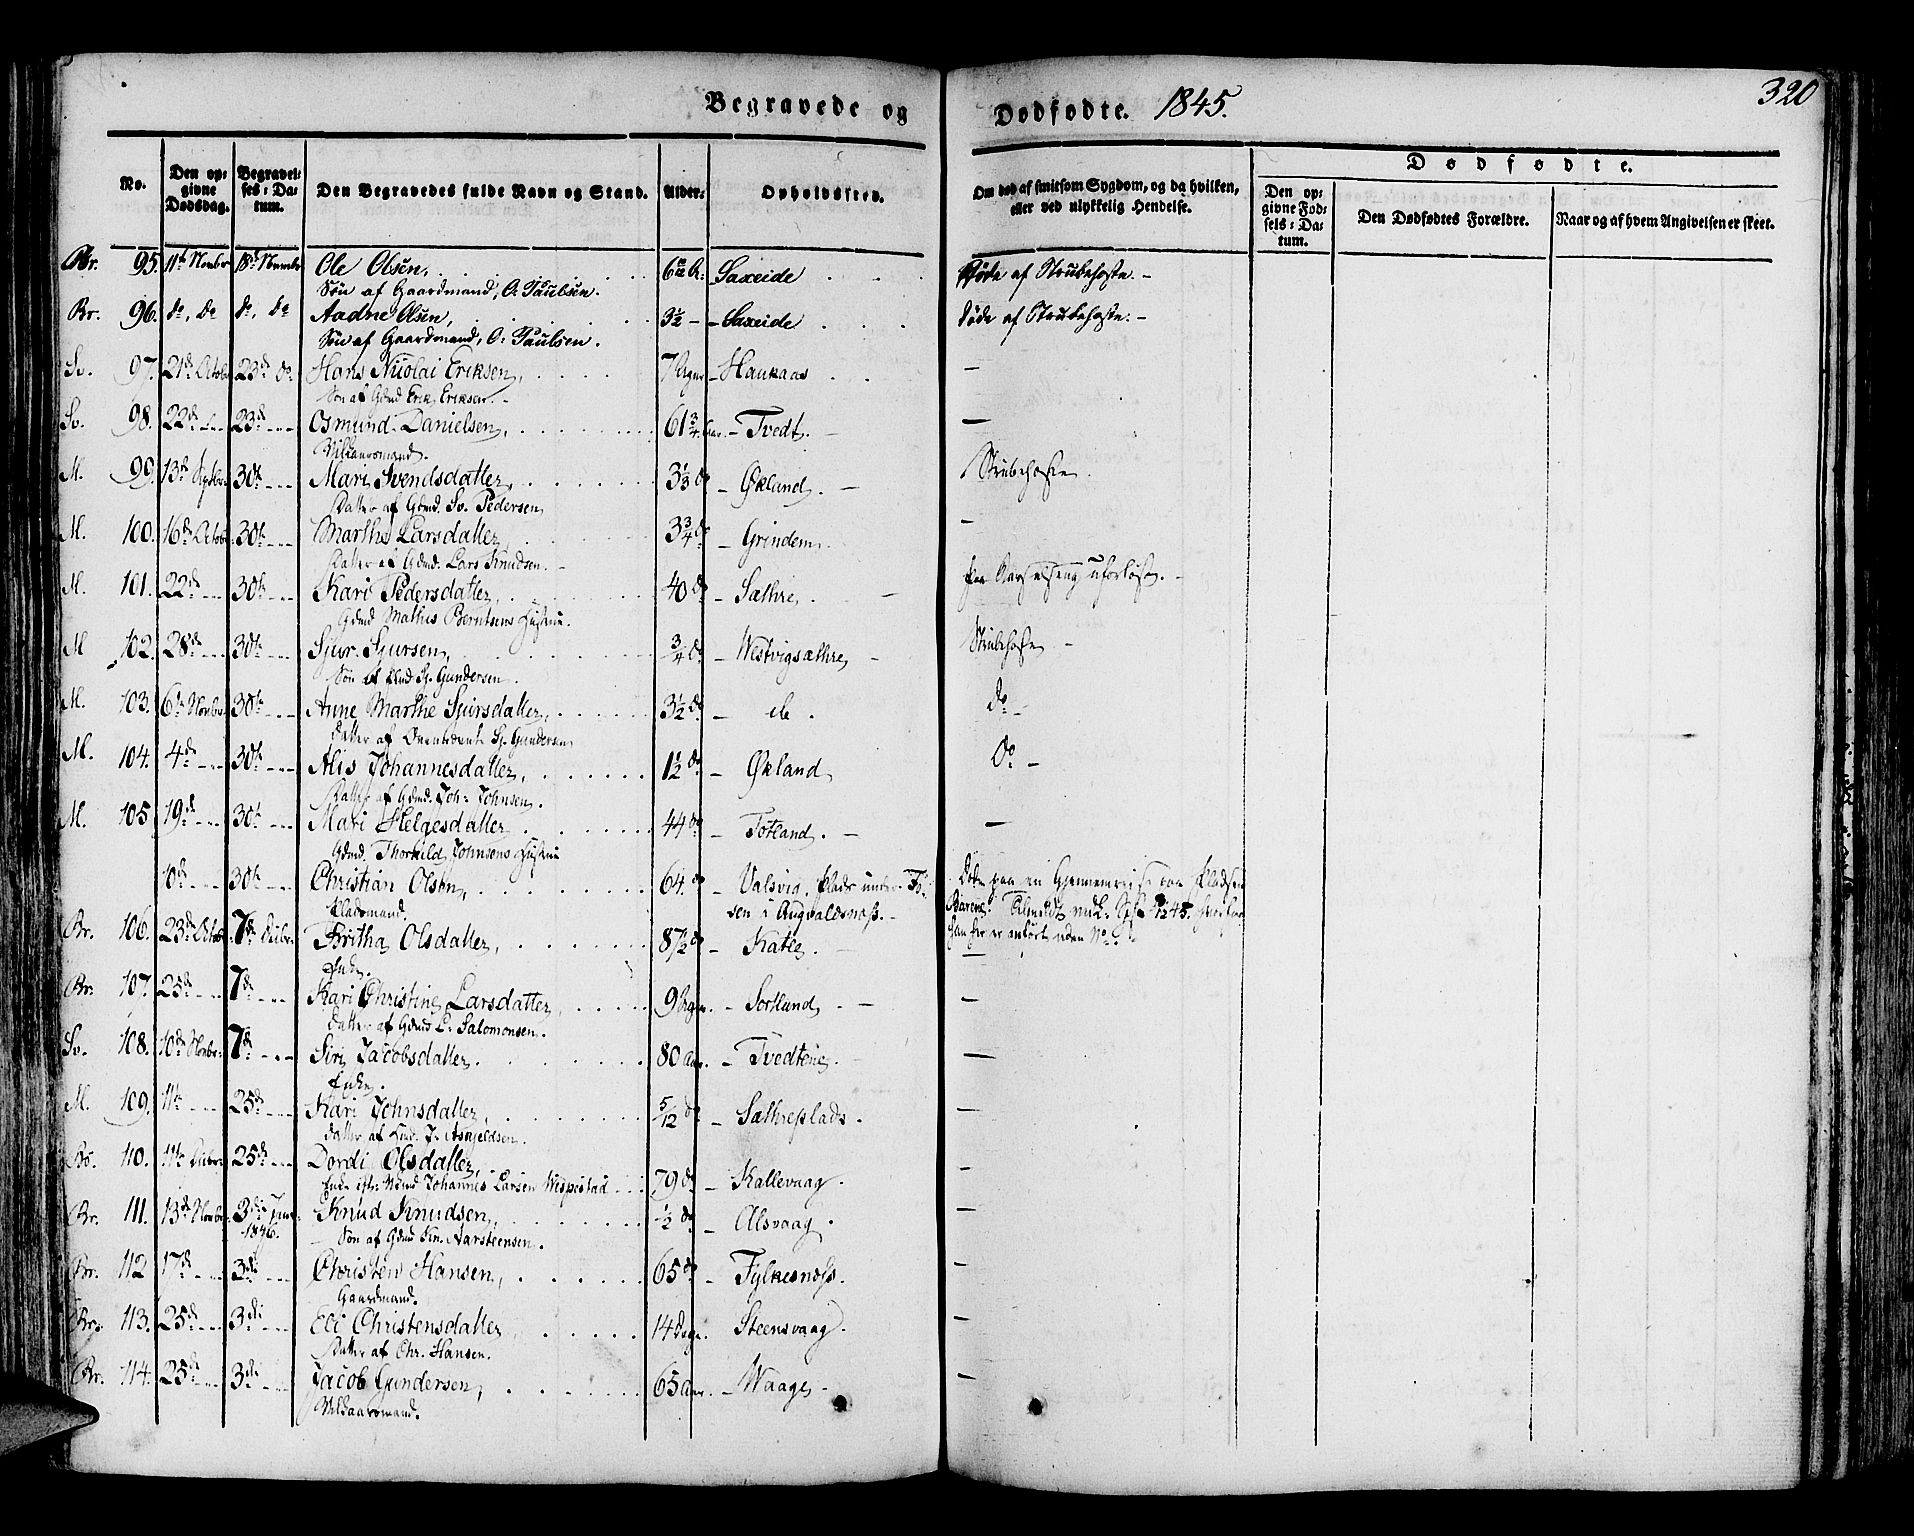 Begravede og Dødfødte. 1845.
320
No.
Den opgivne Dødsdag.
Begravelses-Datum.
Den Begravedes fulde Navn og Stand.
Alder.
Opholdssted.
Om død af smitsom Sygdom, og da hvilken, eller ved ulykkelig Hendelse.
Dødfødte.
Den opgivne Fødsels-Datum.
Den Dødfødtes Forældre.
Naar og af hvem Angivelsen er skeet.
Br. 95. 11te Novbr 18de Novembr Ole Olsen, Saxeide Døde af Strubehoste. -
Søn af Gaardmand, O: Paulsen.
Br. 96. do, do do, do Aadne Olsen, 3½ - - Saxeide døde af Strubehoste. -
Søn af Gaardmand, O: Paulsen.
Sv. 97. 21de Octob 23de do Hans Nicolai Eriksen, 7 - Haukaas -
Søn af Gdmd Erik Eriksen. -
Sv. 98. 22de 23de Osmund Danielsen, 61¾ Aar. - Tvedt. -
Vilkaarsmand.
M. 99. 13de 30te Mari Svendsdatter, 3⅓ do - Økland. - Strubehoste
Datter af Gdmd. Sv. Pedersen
M. 100. 16de Octob 30te Marthe Larsdatter, 3¾ do - Grindem. -
Datter af Gdmd. Lars Knudsen. -
M. 101. 22de 30te Kari Pedersdatter, 40 do - Sæthre. - paa Barselseng uforløst. -
Gdmd Mathis Berntsens Hustrue.
M 102. 28de 30te Sjur Sjursen, ¾ do - Westvigsæthre, - Strubehoste -
Søn af Sj. Gundersen.
M. 103. 6te Novbr 30te Anne Marthe Sjursdatter, 3½ do - do. do -
Datter af Sj. Gundersen
M. 104. 4de 30te Alis Johannesdatter, 1½ do - Økland, do -
Datter af Gdmd. Joh: Johnsen.
M. 105 19de 30te Mari Helgesdatter 44 do - Totland. - -
Gdmd. Thorkild Johnsens Hustrue
10de 30te Christian Olsen, 64. do - Valsvig, Plads under Fo- Døde paa en Gjennemreise paa Pladsen
Pladsmand. sen i Augvaldsnæss. - han her er anført uden No.
Br. 106. 23de Octob 7de Decbr Britha Olsdatter, 87½ do - Katle. - -
Enke.
Br. 107. 25de 7de Kari Christine Larsdatter, 9 - Sortland. - -
Datter af Gdmd L. Salomonsen.
Sv. 108. 10de Novbr 7de Siri Jacobsdatter. 80 Aar. - Tvedtene. -
Enke.
M. 109. 11te 25de Kari Johnsdatter, 5/12 do - Sæthreplads. -
Datter af J. Askjeldsen.
Br. 110. 11te Decbr 25de Dordi Olsdatter, 79 do - Kallevaag. -
Enke efter Johannes Larsen Wespestad
Br. 111. 13de Novbr 3die Janr 1846. Knud Knudsen, ½ do - Alsvaag. -
Søn af Gdmd Kn. Aarsteensen.
Br. 112 17de 3die Christen Hansen, 65 do - Fylkesnæss. -
Gaardmand.
Br. 113. 25de 3die Eli Christensdatter, 14 Dage. - Steensvaag. -
Datter af Chr. Hansen.
Br. 114. 25de 3die Jacob Gundersen, 65 Aar. - Waage - -
Vilkaarsmand.